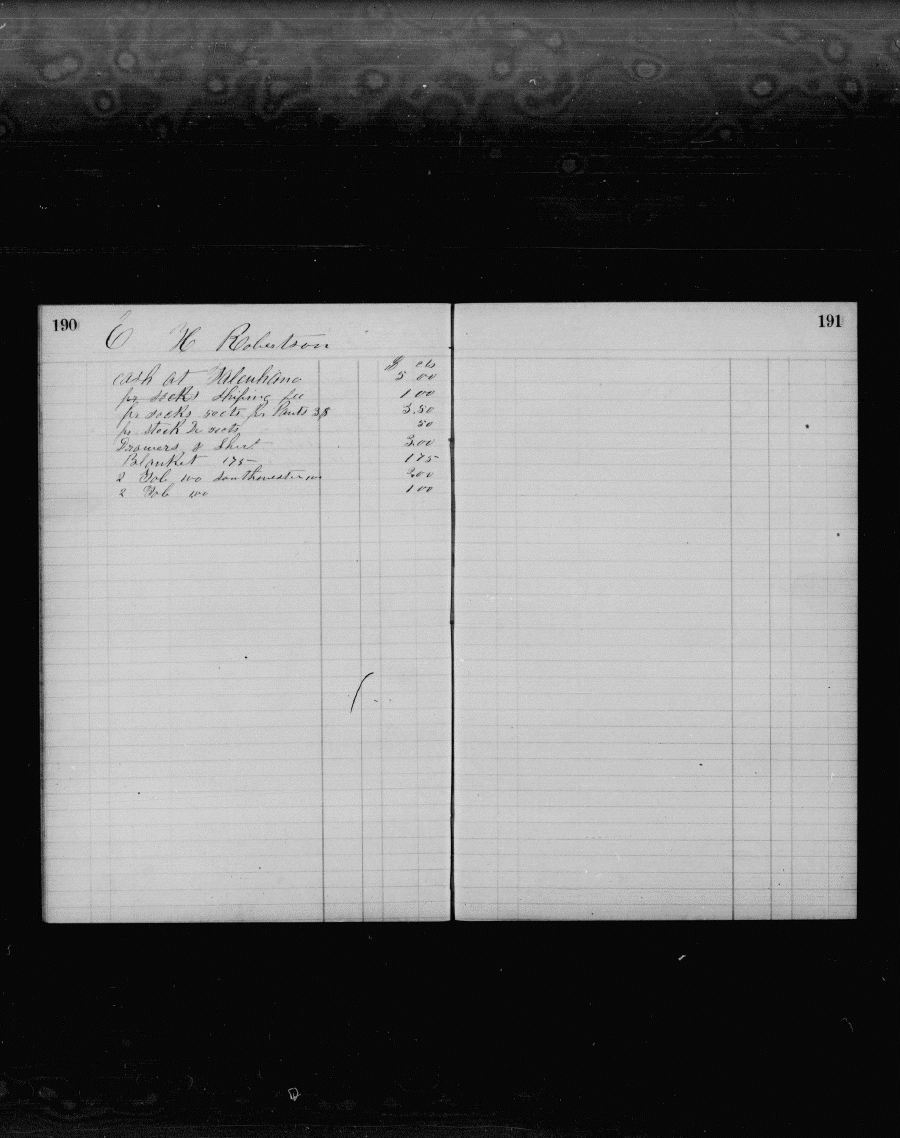 190
E H Robertson
$ cts
cash at Talcahano 5 00
pr socks shiping fee 1 00
pr socks & Pants 3,8 3.50
pr 50
Drawers & Shirt 3.00
Blanket 175 175
2 Tob wo Southwestern 200
2 Tob wo 1 00
191